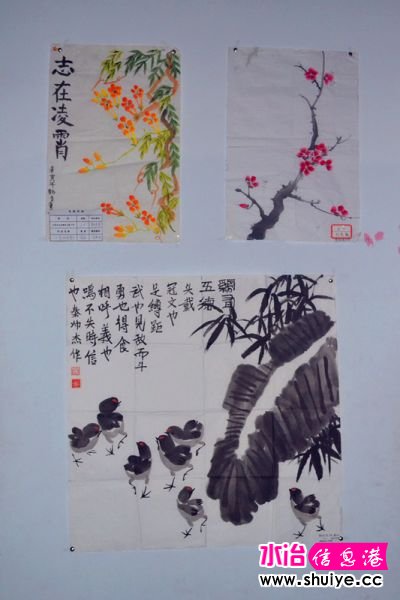 志在凌霄
鷄有
五德
头戴
冠文也
足缚距
武也见敌而斗
勇也得食
相呼義也
鸣不失时信
也 秦帅杰作
水冶信息港
www.shuiye.cc